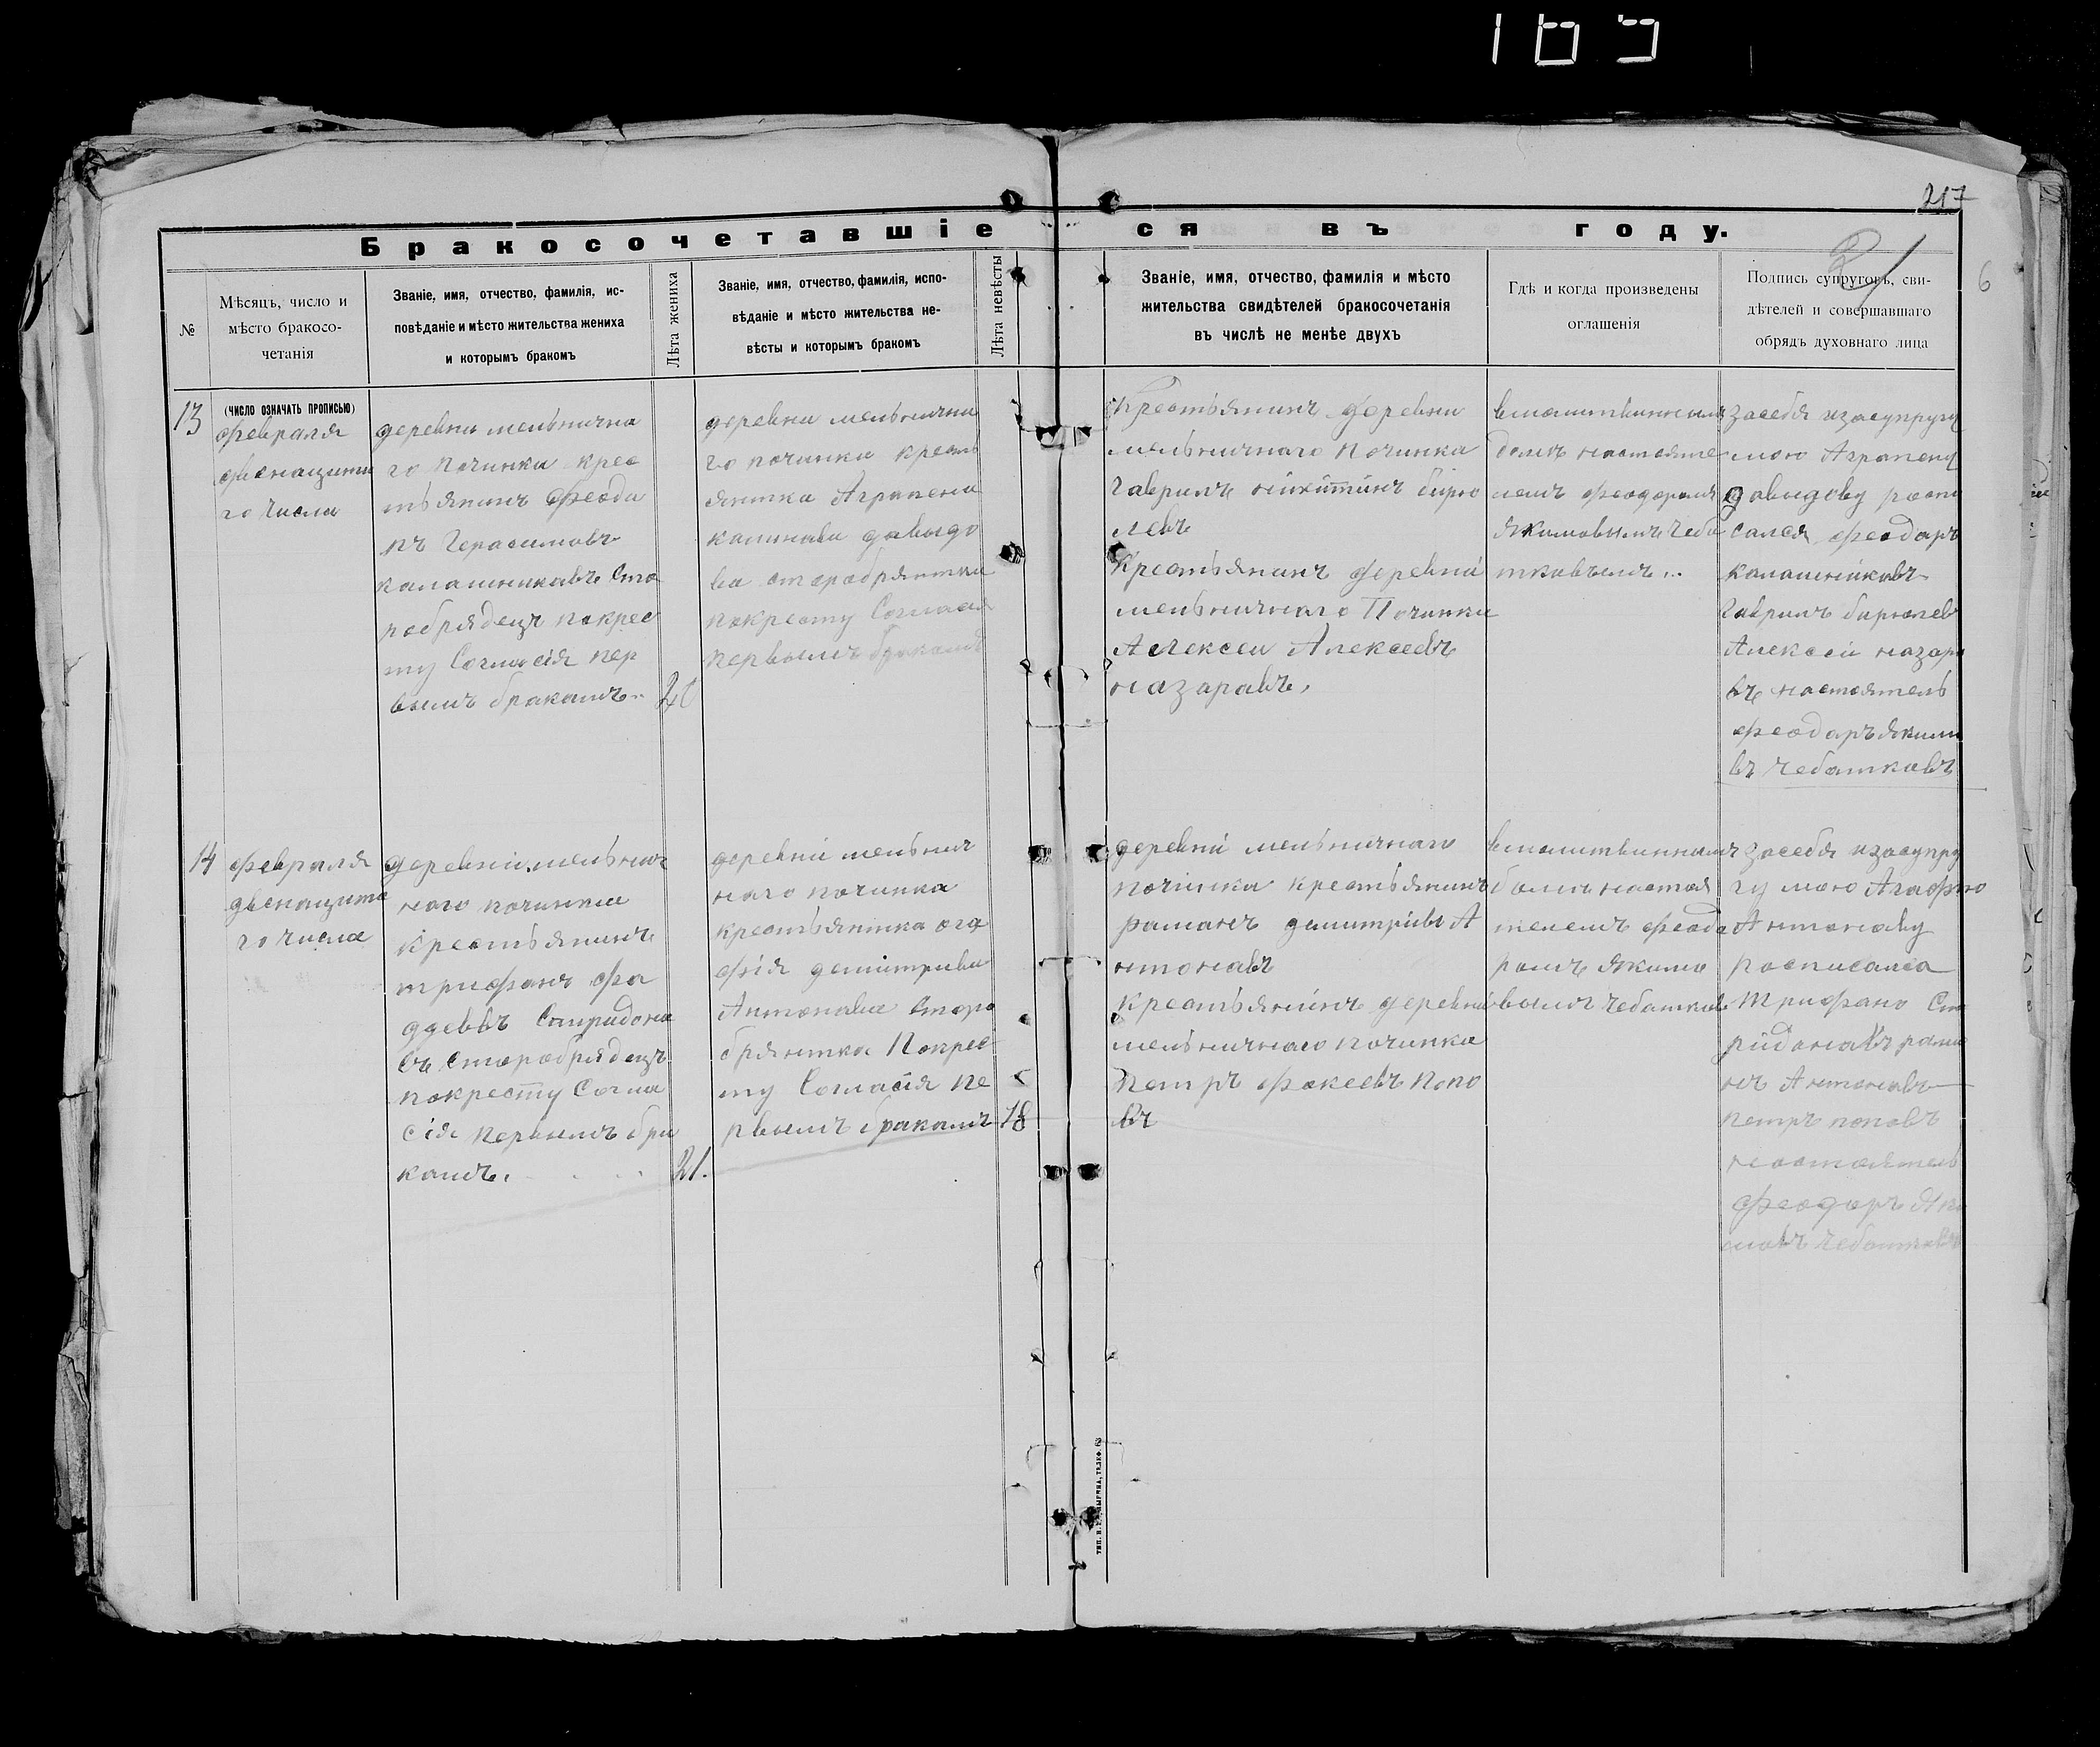 165
217
Бракосочетавшіеся въ году.
6
№
Мѣсяцъ, число и
мѣсто бракосо-
четанія
Званіе, имя, отчество, фамилія, ис-
повѣданіе и мѣсто жительства жениха
и которымъ бракомъ
Лѣта жениха
Званіе, имя, отчество, фамилія, испо-
вѣданіе и мѣсто жительства не-
вѣсты и которымъ бракомъ
Лѣта невѣсты
Званіе, имя, отчество, фамилія и мѣсто
жительства свидѣтелей бракосочетанія
въ числѣ не менѣе двухъ
Гдѣ и когда произведены
оглашенія
Подпись супруговъ, сви-
дѣтелей и совершавшаго
обрядъ духовнаго лица
13
(число означать прописью)
февраля
двенацати
го числа
деревни мельнична
го починка крес
тьянинъ Феода
ръ Герасимовъ
калашникавъ Ста
робрядецъ покрес
ту Согласія пер
вымъ бракамъ..
20
деревни мельнични
го починка кресть
янтка Аграпена
калинава давыдо
ва старобрятка
покресту Согласія
первымъ бракамъ
Крестьянинъ деревни
мельничнаго Починка
Гаврилъ никитинъ бирю
левъ
Крестьянинъ деревни
мельничнаго Починка
Алексеи Алексеевъ
назаравъ,
вмолитвиннымъ
домъ настояте
лемъ феодоромъ
Якимовымъ Чеба
тковымъ..
засебя изасупругу
мою Аграпену
давыдову роспи
сался феодаръ
калашникавъ
Гаврилъ бирюлевъ
Алексѣй назаро
въ настоятель
феодаръ якими
въ Чебаткавъ
14
февраля
двенацата
го числа
деревни мельнич
наго починка
крестьянинъ
трифанъ фа
ддеввъ Спиридона
въ старобрядецъ
покресту Согла
сія первымъ бра
камъ.
21.
деревни мельнич
наго починка
крестьянтка ага
фія демитрива
Антонава Старо
брянтка Покрес
ту Согласія пе
рвымъ бракамъ
18
деревни мельничнаго
починка крестьянинъ
раманъ димитривъ А
нтонавъ
Крестьянинъ деревни
мельничнаго починка
Петръ фокеевъ попо
въ
вмолитвиннамъ
домъ настоя
телемъ феода
ромъ якимо
вымъ Чебаткав
засебя изасупру
гу мою Агафью
Антонаву
росписалса
Трифано Спи
ридонавъ рама
нъ Антонавъ
петръ поповъ
настоятель
феодаръ Яки
мовъ чебаткавъ